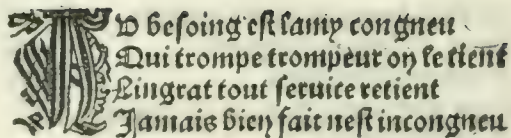 AV besoing est lamy congneu
Qui trompe trompeur on le tient
Lingrat tout seruice retient
Jamais bien fait nest incongneu